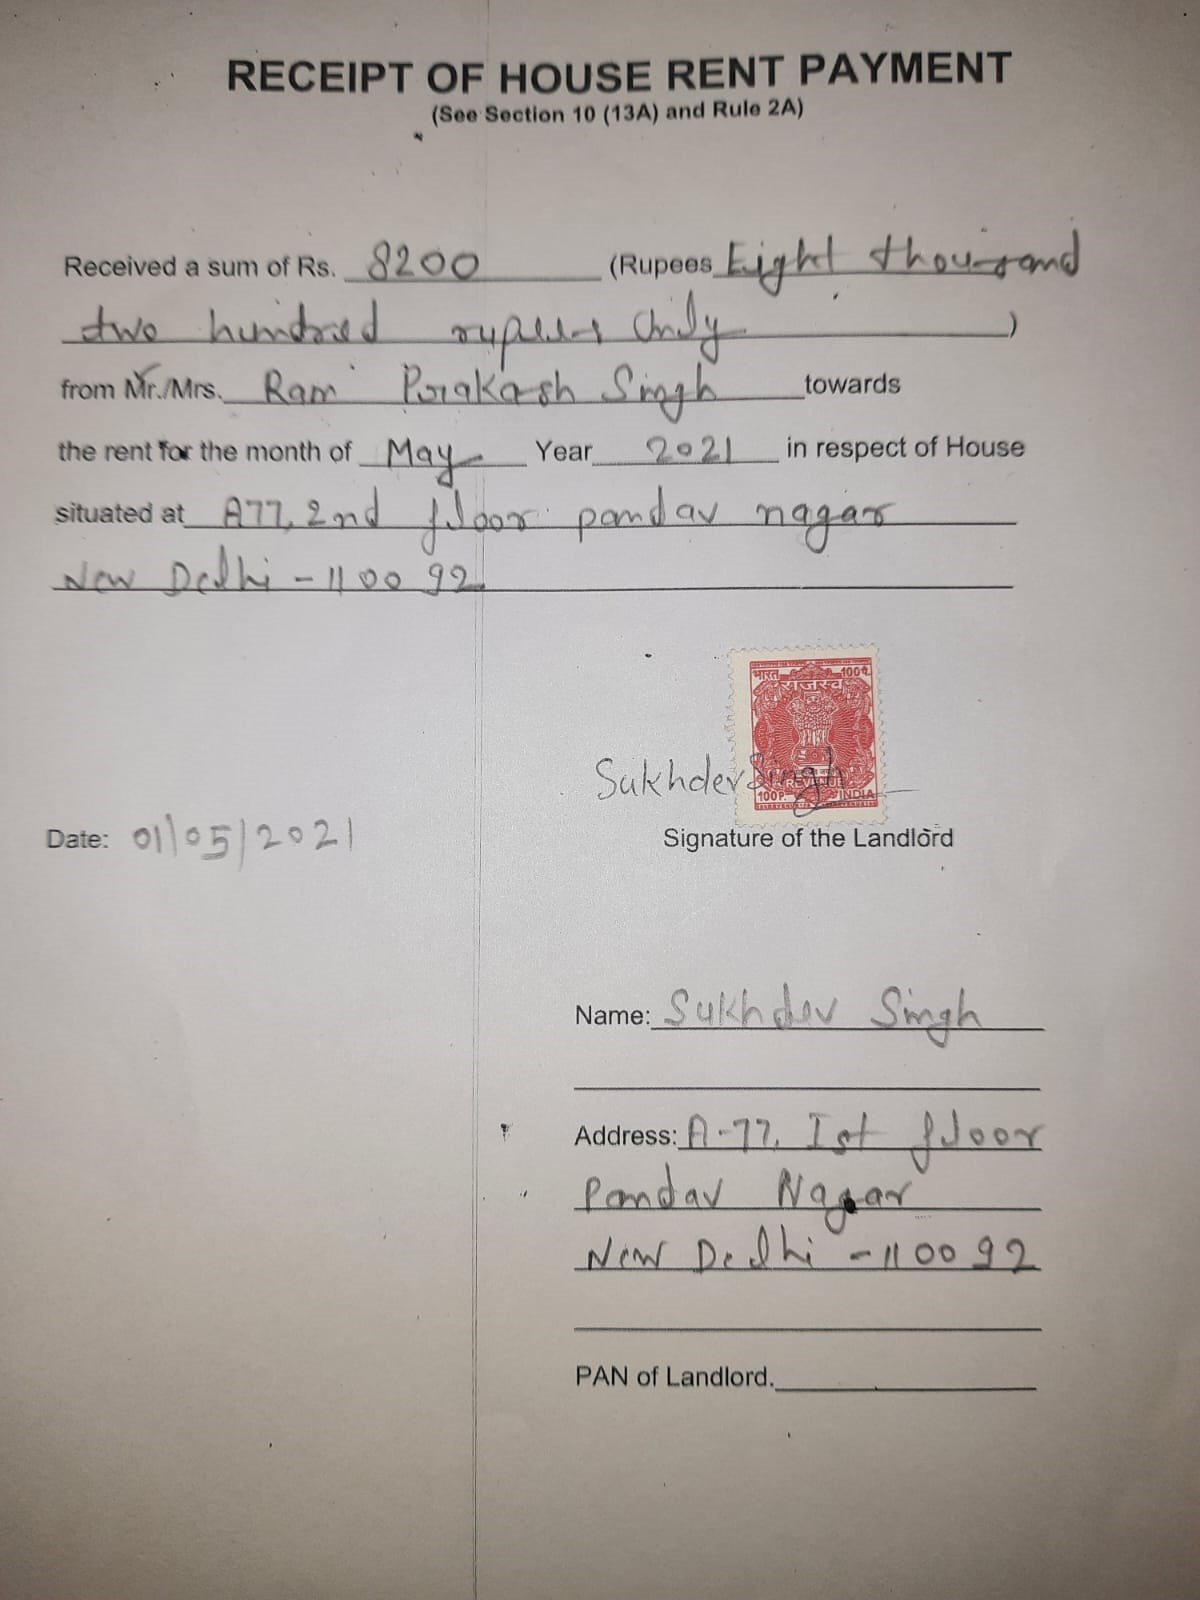 RECEIPT OF HOUSE RENT PAYMENT
(See Section 10 (13A) and Rule 2A)
Received a sum of Rs. 8200 (Rupees Eight thousand
two hundred rupees Only )
from Mr./Mrs. Ram Prakash Singh towards
the rent for the month of May Year 2021 in respect of House
situated at A77, 2nd floor pandav nagar
New Delhi - 110092
भारत 100प.
राजस्व
Sukhdev Singh
REVENUE
100P. INDIA
Signature of the Landlord
Date: 01/05/2021
Name: Sukhdev Singh
Address: A-77, Ist floor
Pandav Nagar
New Delhi - 110092
PAN of Landlord.